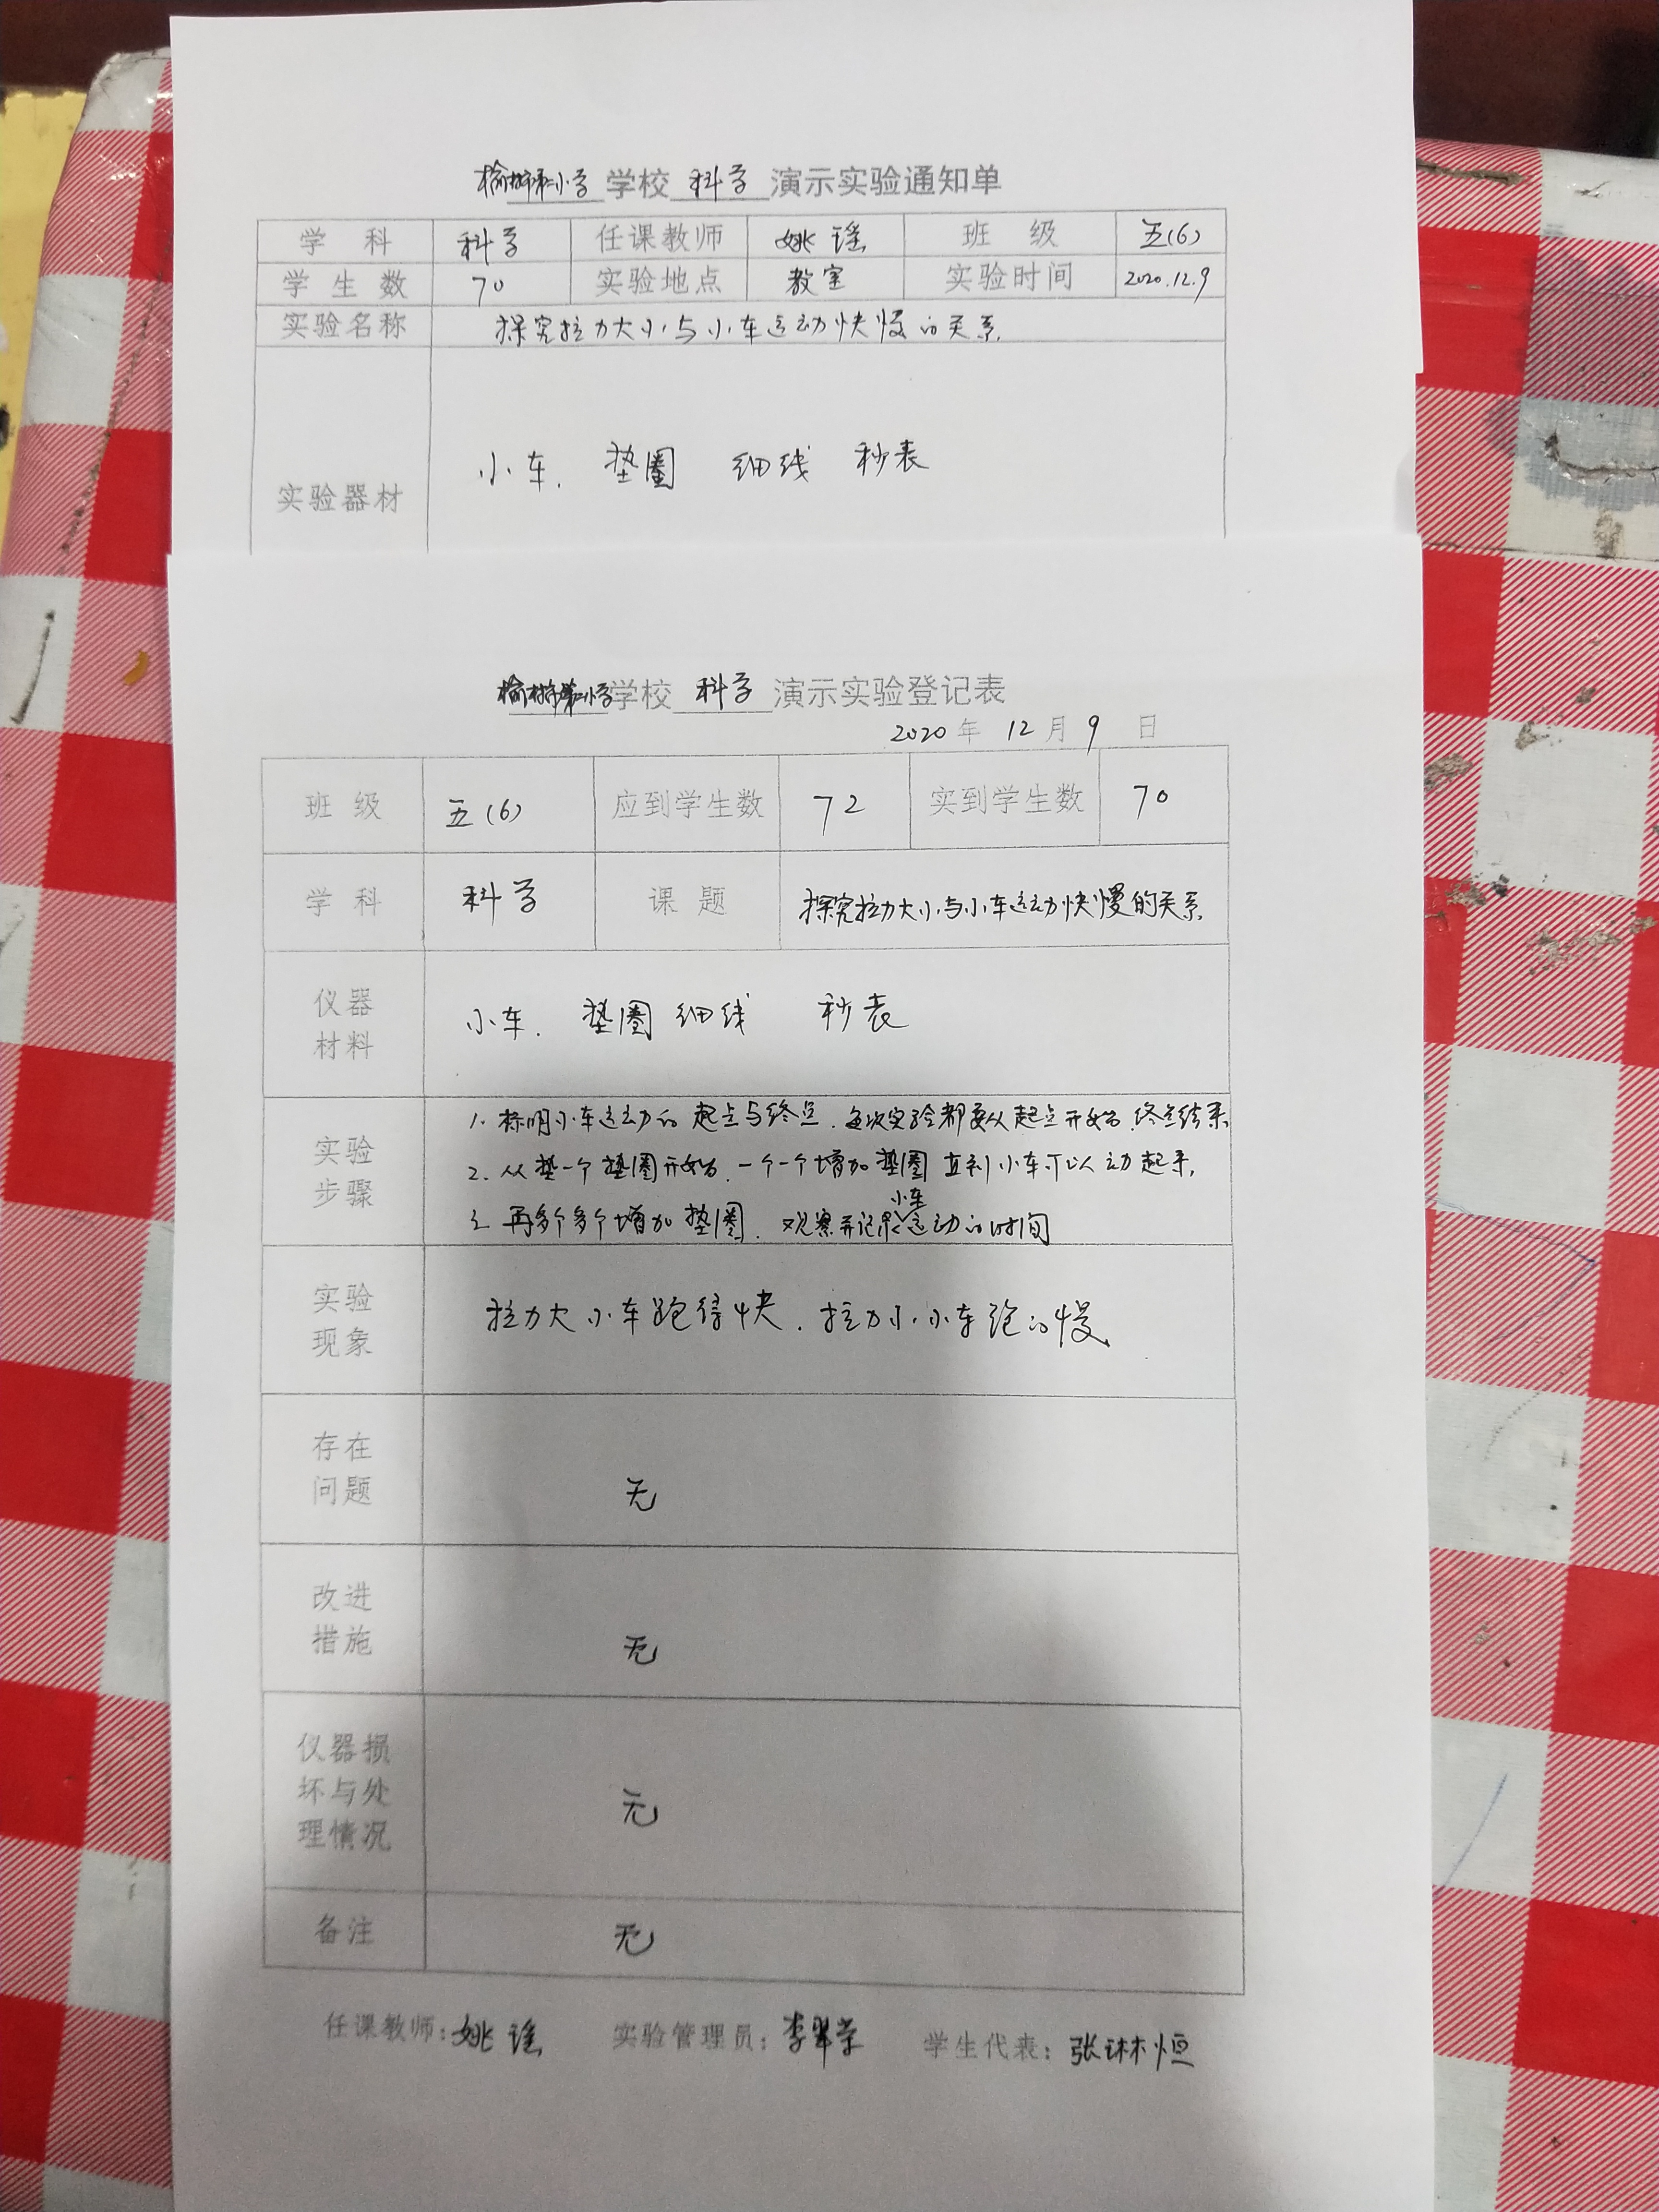 榆树市第二小学学校 科学 演示实验通知单
学 科 科学 任课教师 姚瑶 班 级 五(6)
学 生 数 70 实验地点 教室 实验时间 2020.12.9
实验名称 探究拉力大小与小车运动快慢的关系.
小车. 垫圈 细线 秒表
实验器材
榆树市第二小学学校 科学 演示实验登记表
2020 年 12 月 9 日
班 级 五(6) 应到学生数 72 实到学生数 70
学 科 科学 课 题 探究拉力大小与小车运动快慢的关系
仪器
材料
小车. 垫圈 细线 秒表
实验
步骤
1. 标明小车运动的起点与终点. 每次实验都要从起点开始.终点结束
2. 从垫一个垫圈开始.一个一个增加垫圈 直到小车可以动起来.
3. 再多个多个增加垫圈. 观察并记录小车运动的时间
实验
现象
拉力大小车跑得快. 拉力小.小车跑的慢
存在
问题
无
改进
措施
无
仪器损
坏与处
理情况
无
备注 无
任课教师：姚瑶 实验管理员：李 学生代表：张琳恒